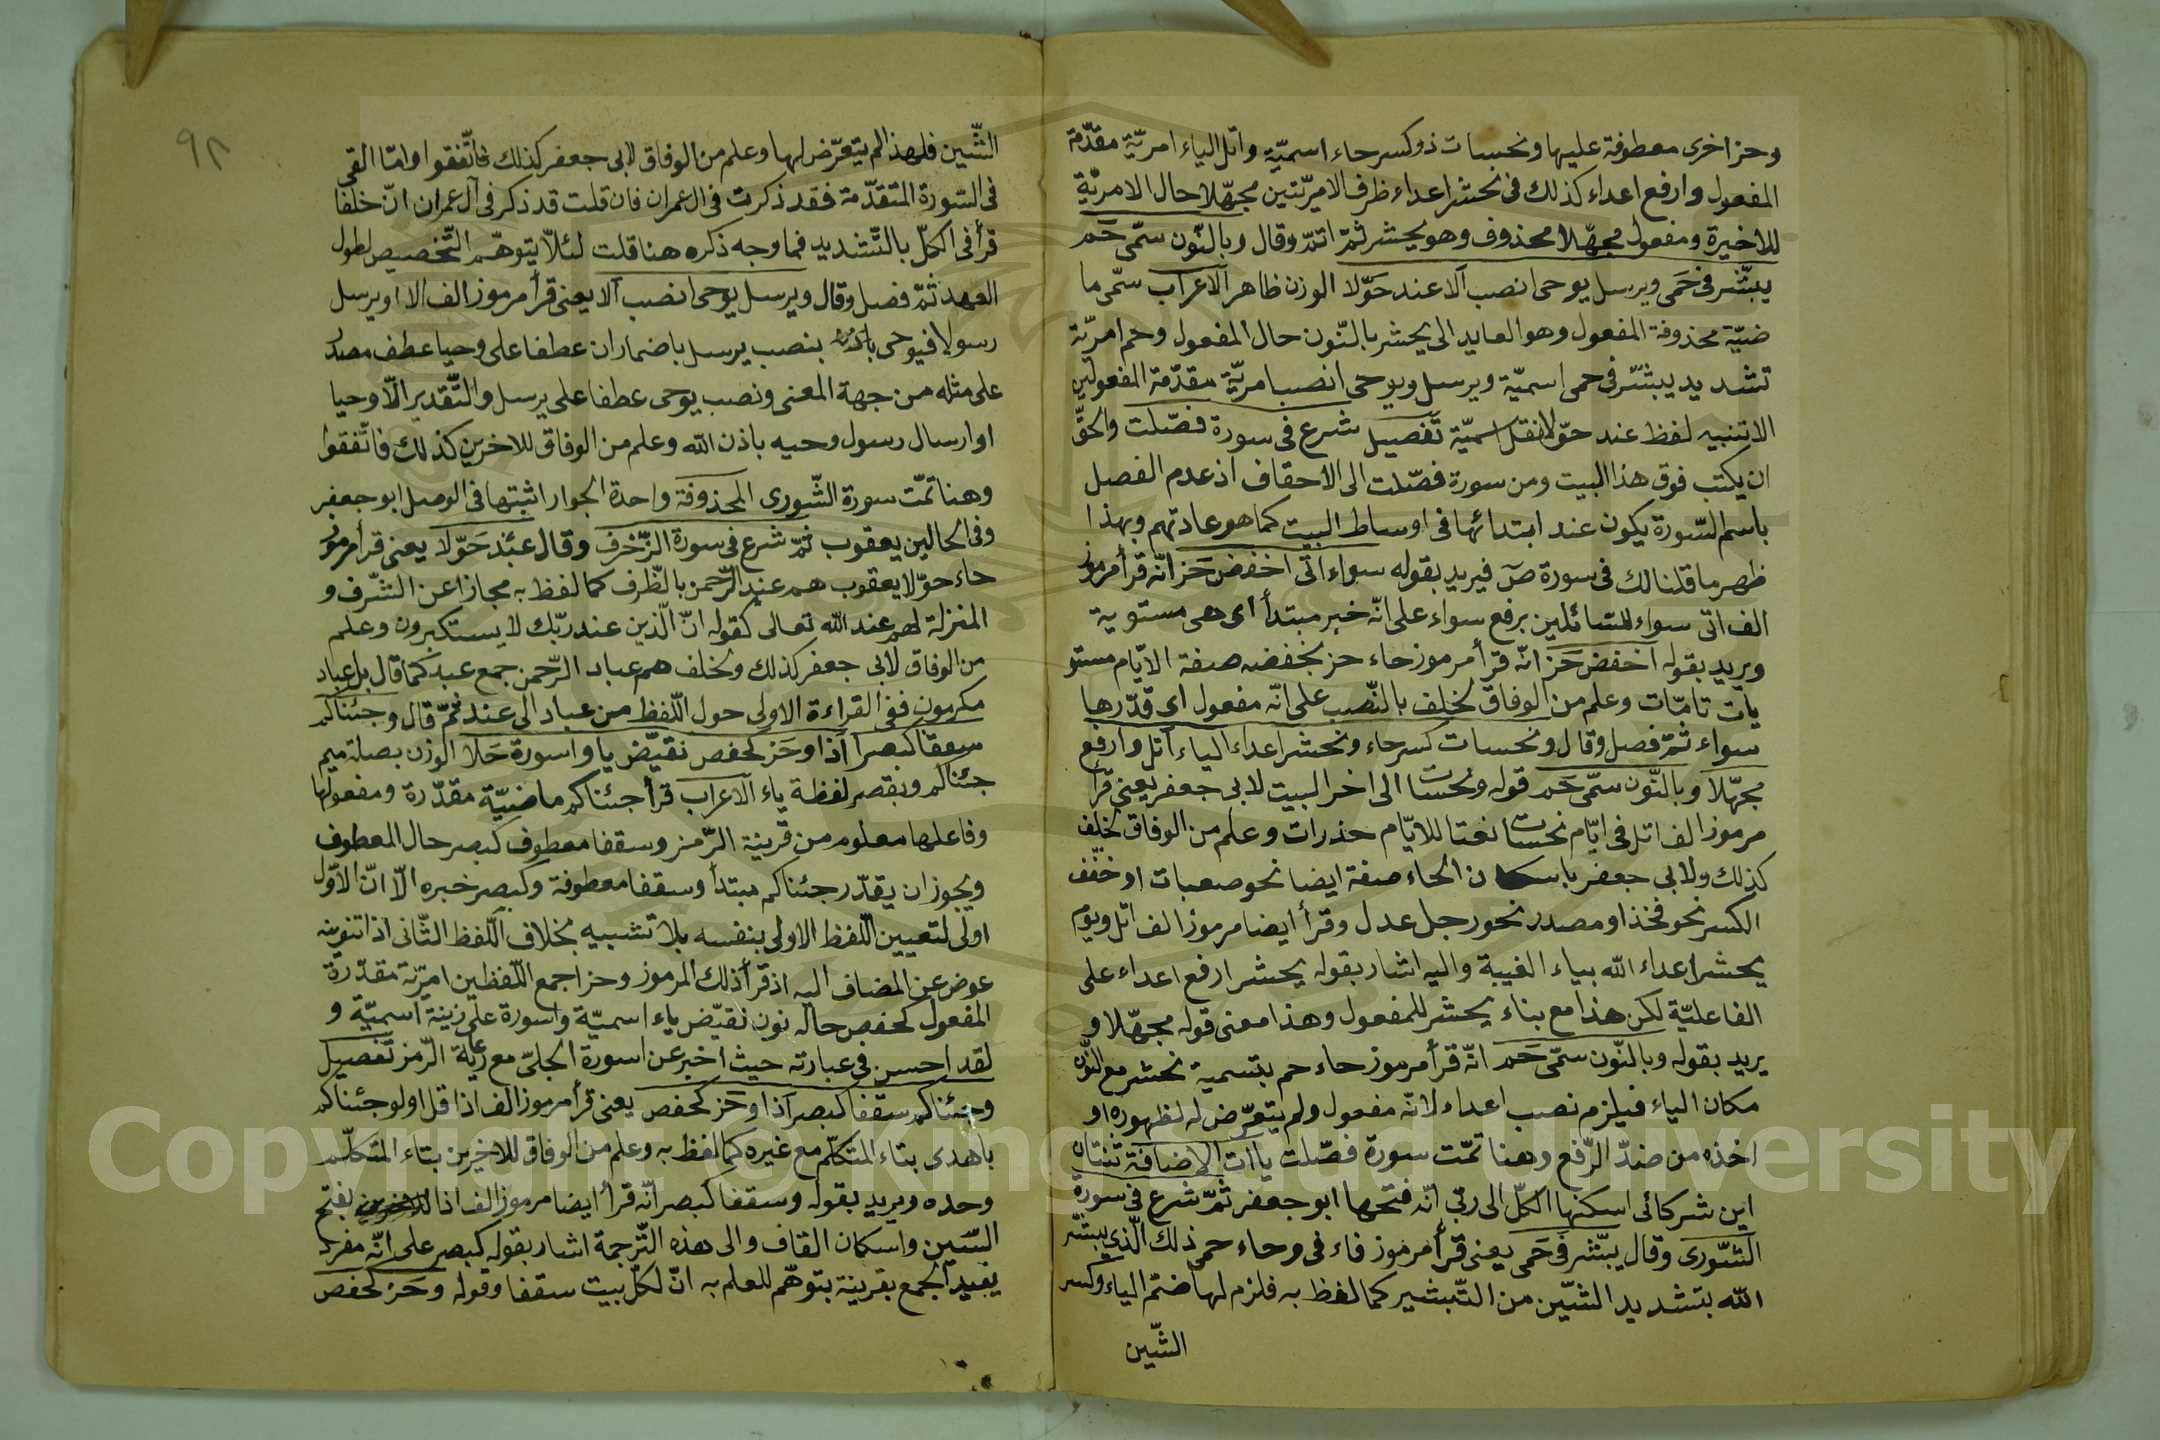 وحز اخرى معطوفة عليها ونحسات ذو كسر حاء اسميّة واتل الياء امريّة مقدّمة
المفعول وارفع اعداء كذلك في نحشر اعداء ظرف الامريّتين مجهّلا حال الامريّة
للاخيرة ومفعول مجهّلا محذوف وهو يحشر ثمّ اتمّ وقال وبالنّون سمّى حم
يبشّر في حمى ويرسل يوحى انصب آلا عند حوّلا الوزن ظاهر الاعراب سمّى ما
ضيّة محذوفة المفعول وهو العايد الى يحشر بالنّون حال المفعول وحم امريّة
تشديد يبشّر في حمى اسميّة ويرسل ويوحى انصب امريّة مقدّمة المفعولين
الا تنبيه لفظ عند حوّلا نقل اسميّة تفصيل شرع في سورة فصّلت والحقّ
ان يكتب فوق هذا البيت ومن سورة فصّلت الى الاحقاف اذ عدم الفصل
باسم السّورة يكون عند ابتدائها في اوساط البيت كما هو عادتهم وبهذا
ظهر ما قلنا لك في سورة صۤ فيريد بقوله سواء اتى اخفض حز انّه قرأ مرموز
الف اتى سواء للسّائلين برفع سواء على انّه خبر مبتدأ اى هى مستوية
ويريد بقوله اخفض حز انّه قرأ مرموز حاء حز بخفضه صفة الايّام مستو
يات تامّات وعلم من الوفاق لخلف بالنّصب على انّه مفعول اى قدّرها
سواء ثمّ فصل وقال ونحسات كسر حاء ونحشر اعداء الياء اتل وارفع
مجهّلا وبالنّون سمّى حم قوله ونحسات الى اخر البيت لابى جعفر يعنى قرأ
مرموز الف اتل في ايّام نحسات نعتا للايّام حذرات وعلم من الوفاق لخلف
كذلك ولابى جعفر باسكان الحاء صفة ايضا نحو صعبات او خفّف
الكسر نحو فخذ او مصدر نحو رجل عدل وقرأ ايضا مرموز الف اتل ويوم
يحشر اعداء الله بياء الغيبة واليه اشار بقوله يحشر ارفع اعداء على
الفاعليّة لكن هذا مع بناء يحشر للمفعول وهذا معنى قوله مجهّلا و
يريد بقوله وبالنّون سمّى حم انّه قرأ مرموز حاء حم بتسمية نحشر مع النّون
مكان الياء فيلزم نصب اعداء لانّه مفعول ولم يتعرّض له لظهوره او
اخذه من ضدّ الرّفع وهنا تمّت سورة فصّلت ياآت الاضافة ثنتان
اين شركائى اسكنها الكلّ الى ربّى انّه فتحها ابو جعفر ثمّ شرع في سورة
الشّورى وقال يبّشر في حمى يعنى قرأ مرموز فاء في وحاء حمى ذلك الّذى يبشّر
الله بتشديد الشّين من التّبشير كما لفظ به فلزم لها ضمّ الياء وكسر
الشّين
٩٨
الشّين فلهذا لم يتعرّض لها وعلم من الوفاق لابى جعفر كذلك فاتّفقوا وامّا القى
في السّورة المتقدّمة فقد ذكرت في ال عمران فان قلت قد ذكر في آل عمران انّ خلفا
قرأ في الكلّ بالتّشديد فما وجه ذكره هنا قلت لئلّا يتوهّم التّخصيص لطول
العهد ثمّ فصل وقال ويرسل يوحى انصب آلا يعنى قرأ مرموز الف الا او يرسل
رسولا فيوحى باذنه بنصب يرسل باضمار ان عطفا على وحيا عطف مصدر
على مثله من جهة المعنى ونصب يوحى عطفا على يرسل والتّقدير الّا وحيا
او ارسال رسول وحيه باذن الله وعلم من الوفاق للاخرين كذلك فاتّفقوا
وهنا تمّت سورة الشّورى المحذوفة واحدة الجوار اثبتها في الوصل ابو جعفر
وفى الحالين يعقوب ثمّ شرع في سورة الزّخرف وقال عند حوّلا يعنى قرأ مرموز
حاء حوّلا يعقوب هم عند الرّحمن بالظّرف كما لفظ به مجازا عن الشّرف و
المنزلة لهم عند الله تعالى كقوله انّ الّذين عند ربّك لا يستكبرون وعلم
من الوفاق لابى جعفر كذلك ولخلف هم عباد الرّحمن جمع عبد كما قال بل عباد
مكرمون ففى القراءة الاولى حول اللّفظ من عباد الى عند ثمّ قال وجئناكم
سقفا كبصرا اذا وحز كحفص نقيّض يا واسورة حلا الوزن بصلة ميم
جئناكم وبقصر لفظة ياء الاعراب قرأ جئناكم ماضيّة مقدّرة ومفعولها
وفاعلها معلوم من قرينة الرّمز وسقفا معطوف كبصر حال المعطوف
ويجوز ان يقدّر جئناكم مبتدأ وسقفا معطوفة وكبصر خبره الّا انّ الاوّل
اولى لتعيين اللّفظ الاولى بنفسه بلا تشبيه بخلاف اللّفظ الثّانى اذا تنوينه
عوض عن المضاف اليه اذ قرأ ذلك المرموز وحز اجمع اللّفظين امريّة مقدّرة
المفعول كحفص حاله نون نقيّض ياء اسميّة واسورة على زينة اسميّة و
لقد احسن في عبارته حيث اخبر عن اسورة الجلىّ مع رعاية الرّمز تفصيل
وجئناكم سقفا كبصر اذا وحز كحفص يعنى قرأ مرموز الف اذا قل اولو جئناكم
باهدى بتاء المتكلّم مع غيره كما لفظ به وعلم من الوفاق للاخرين بتاء المتكلّم
وحده ويريد بقوله وسقفا كبصر انّه قرأ ايضا مرموز الف اذا بفتح
السّين واسكان القاف والى هذه التّرجمة اشار بقوله كبصر على انّه مفرد
يفيد الجمع بقرينة بتوهّم للعلم به انّ لكلّ بيت سقفا وقوله وحز كحفص
Copyright © King Saud University